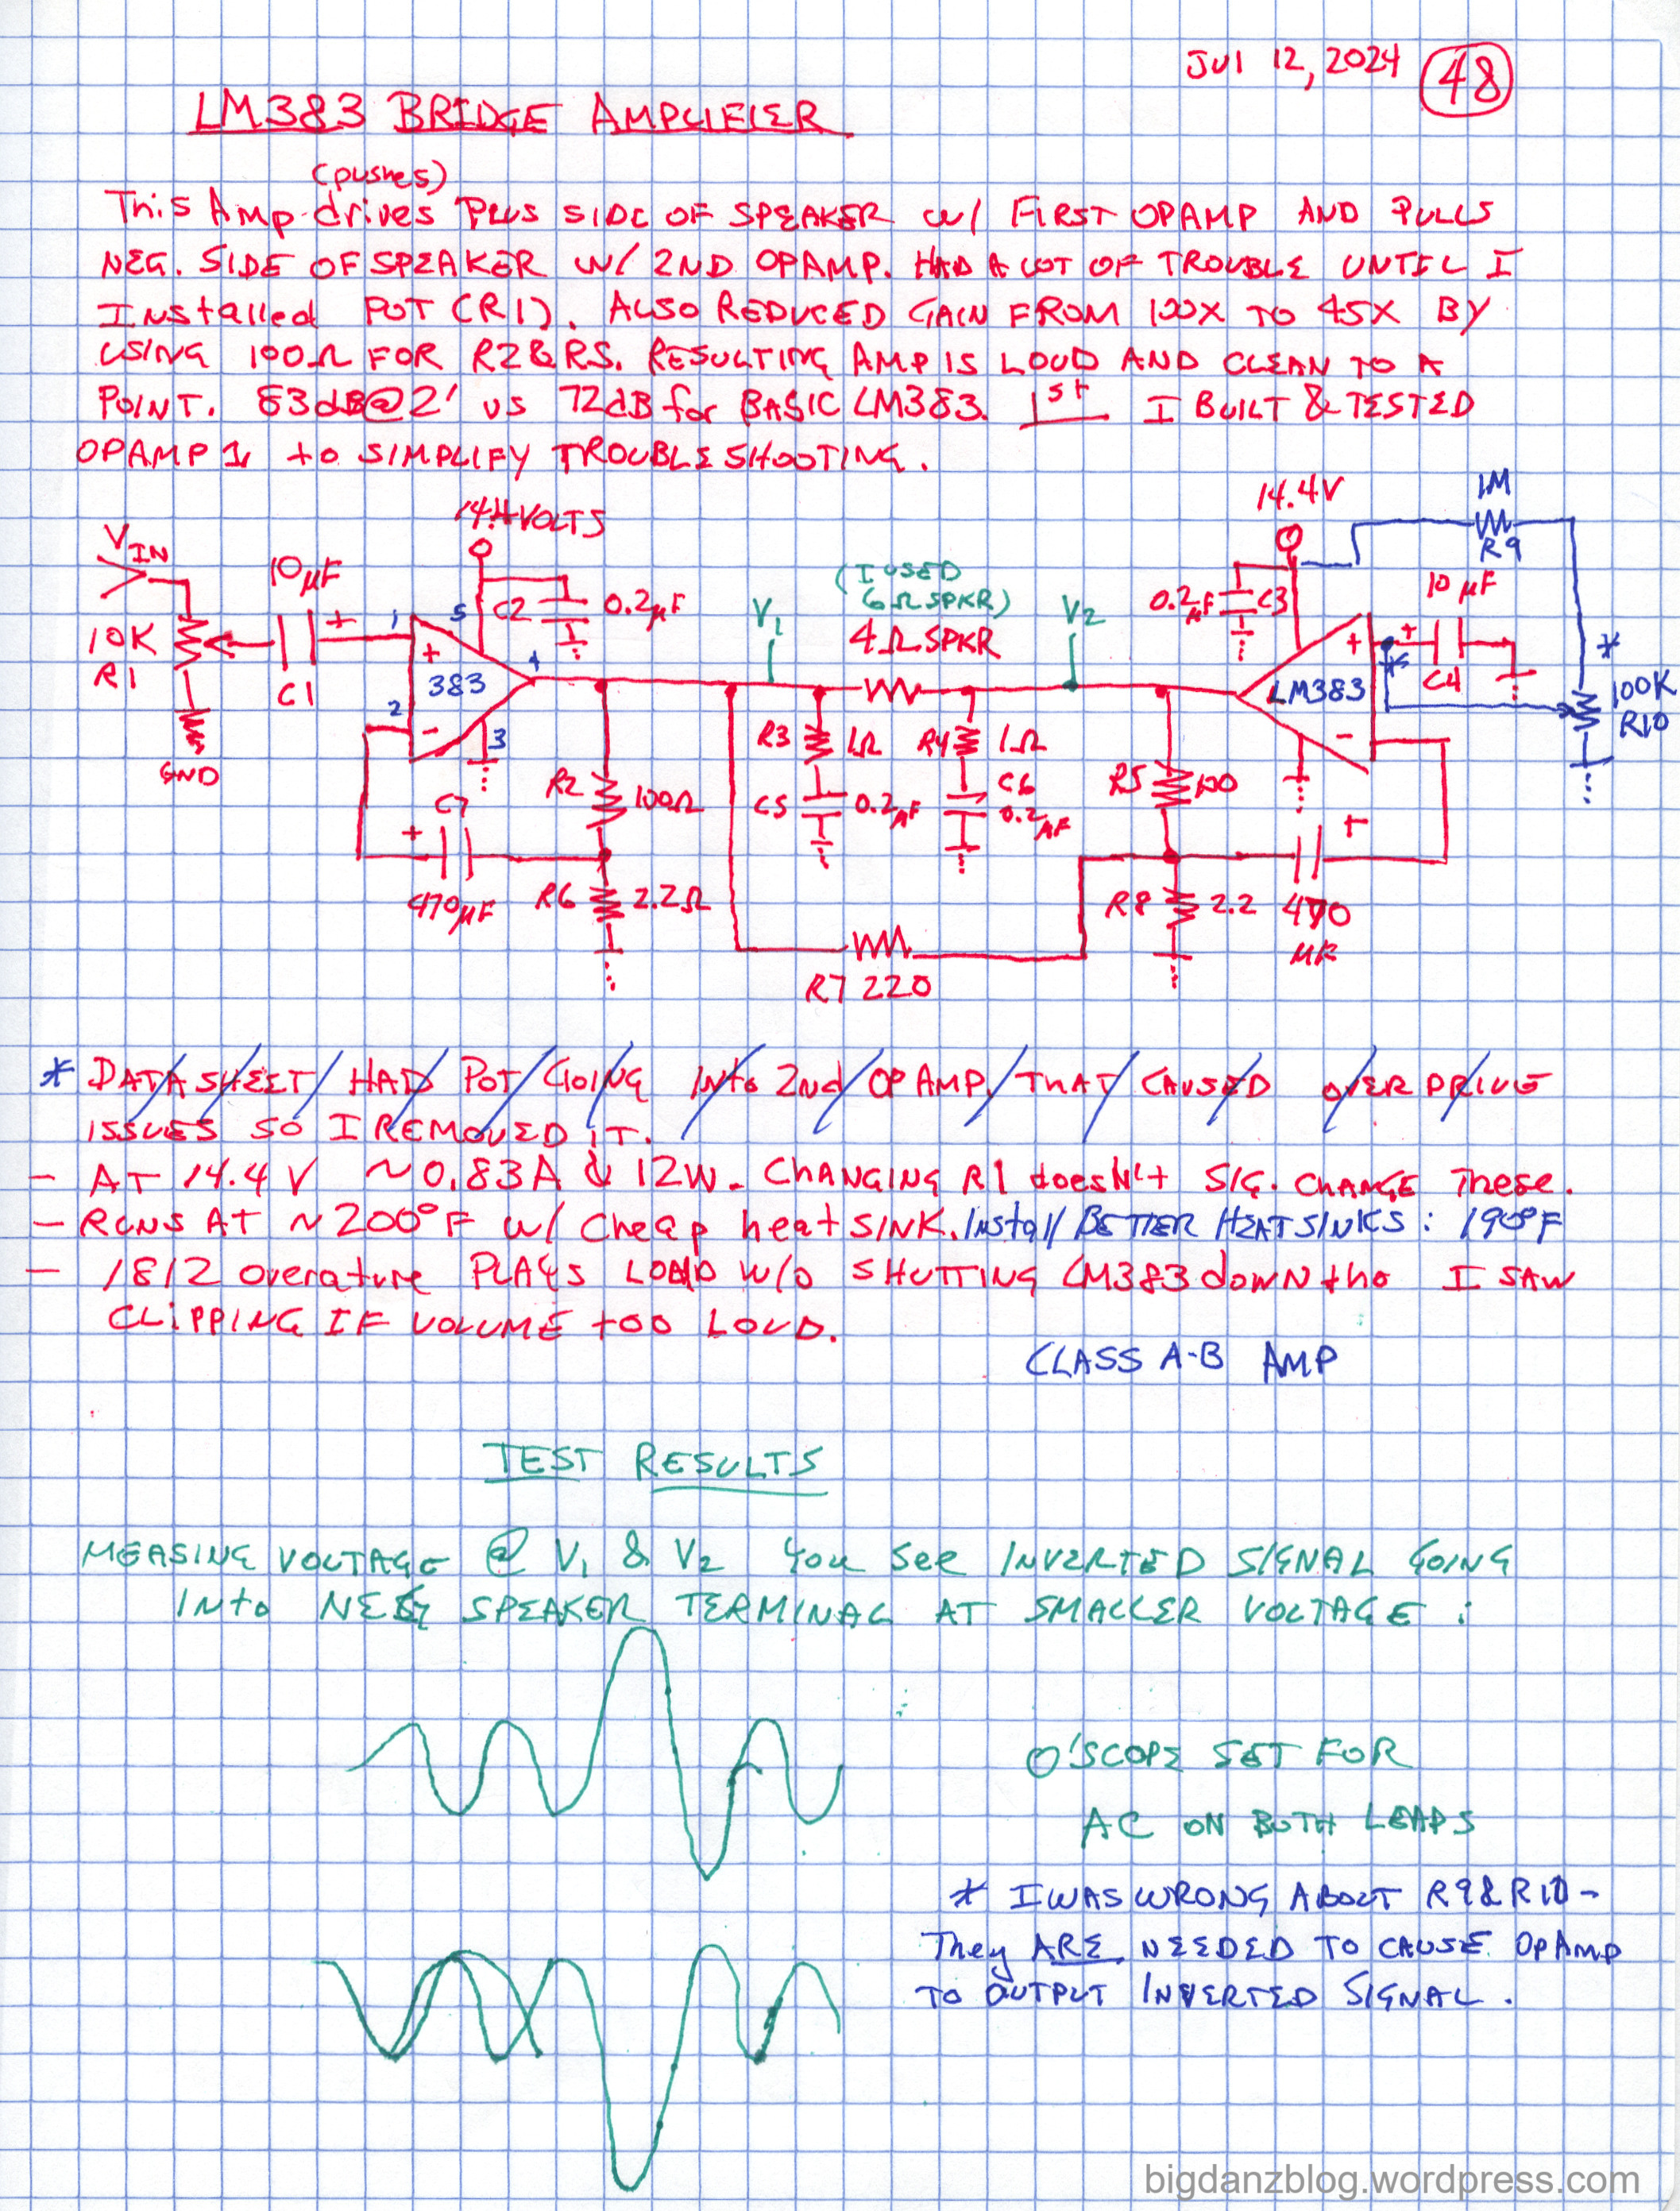 JUl 12, 2024 48
LM383 BRIDGE AMPLIFIER
(pushes)
This Amp drives PLUS SIDE OF SPEAKER W/ FIRST OPAMP AND PULLS
NEG. SIDE OF SPEAKER W/ 2ND OPAMP. HAD A LOT OF TROUBLE UNTIL I
INstalled POT (R1). ALSO REDUCED GAIN FROM 100X TO 45X BY
USING 100Ω FOR R2 & R5. RESULTING AMP IS LOUD AND CLEAN TO A
POINT. 83dB@2' VS 72dB for BASIC LM383. 1st I BUILT & TESTED
OPAMP 1 to SIMPLIFY TROUBLESHOOTING.
14.4 VOLTS
14.4V
1M
R9
VIN
10µF
C1
10K
R1
GND
+
1
5
C2
0.2µF
+
383
4
2
-
3
V1
(I USED
6Ω SPKR)
4Ω SPKR
V2
0.2µF
C3
10 µF
+
C4
+
LM383
-
*
*
100K
R10
C7
+
470µF
R2
100Ω
R6
2.2Ω
R3
1Ω
R4
1Ω
C5
0.2µF
C6
0.2µF
R5
100
R8
2.2
+
470
µF
R7 220
* DATA SHEET HAD POT GOING INto 2nd OP AMP. THAT CAUSED OVER DRIVE
ISSUES SO I REMOVED IT.
- AT 14.4 V ~0.83A & 12W. CHANGING R1 doesN't SIG. CHANGE These.
- RUNS AT ~200°F W/ Cheap heat SINK. Install BETTER HEAT SINKS: 190°F
- 1812 Overature PLAYS LOUD W/O SHUTTING LM383 down tho I SAW
CLIPPING IF VOLUME too LOUD.
CLASS A-B AMP
TEST RESULTS
MEASING VOLTAGE @ V1 & V2 You See INVERTED SIGNAL GOING
INto NEG SPEAKER TERMINAL AT SMALLER VOLTAGE :
O'SCOPE SET FOR
AC ON BOTH LEADS
* I WAS WRONG ABOUT R9 & R10 -
They ARE NEEDED TO CAUSE OpAmp
TO OUTPUT INVERTED SIGNAL.
bigdanzblog.wordpress.com